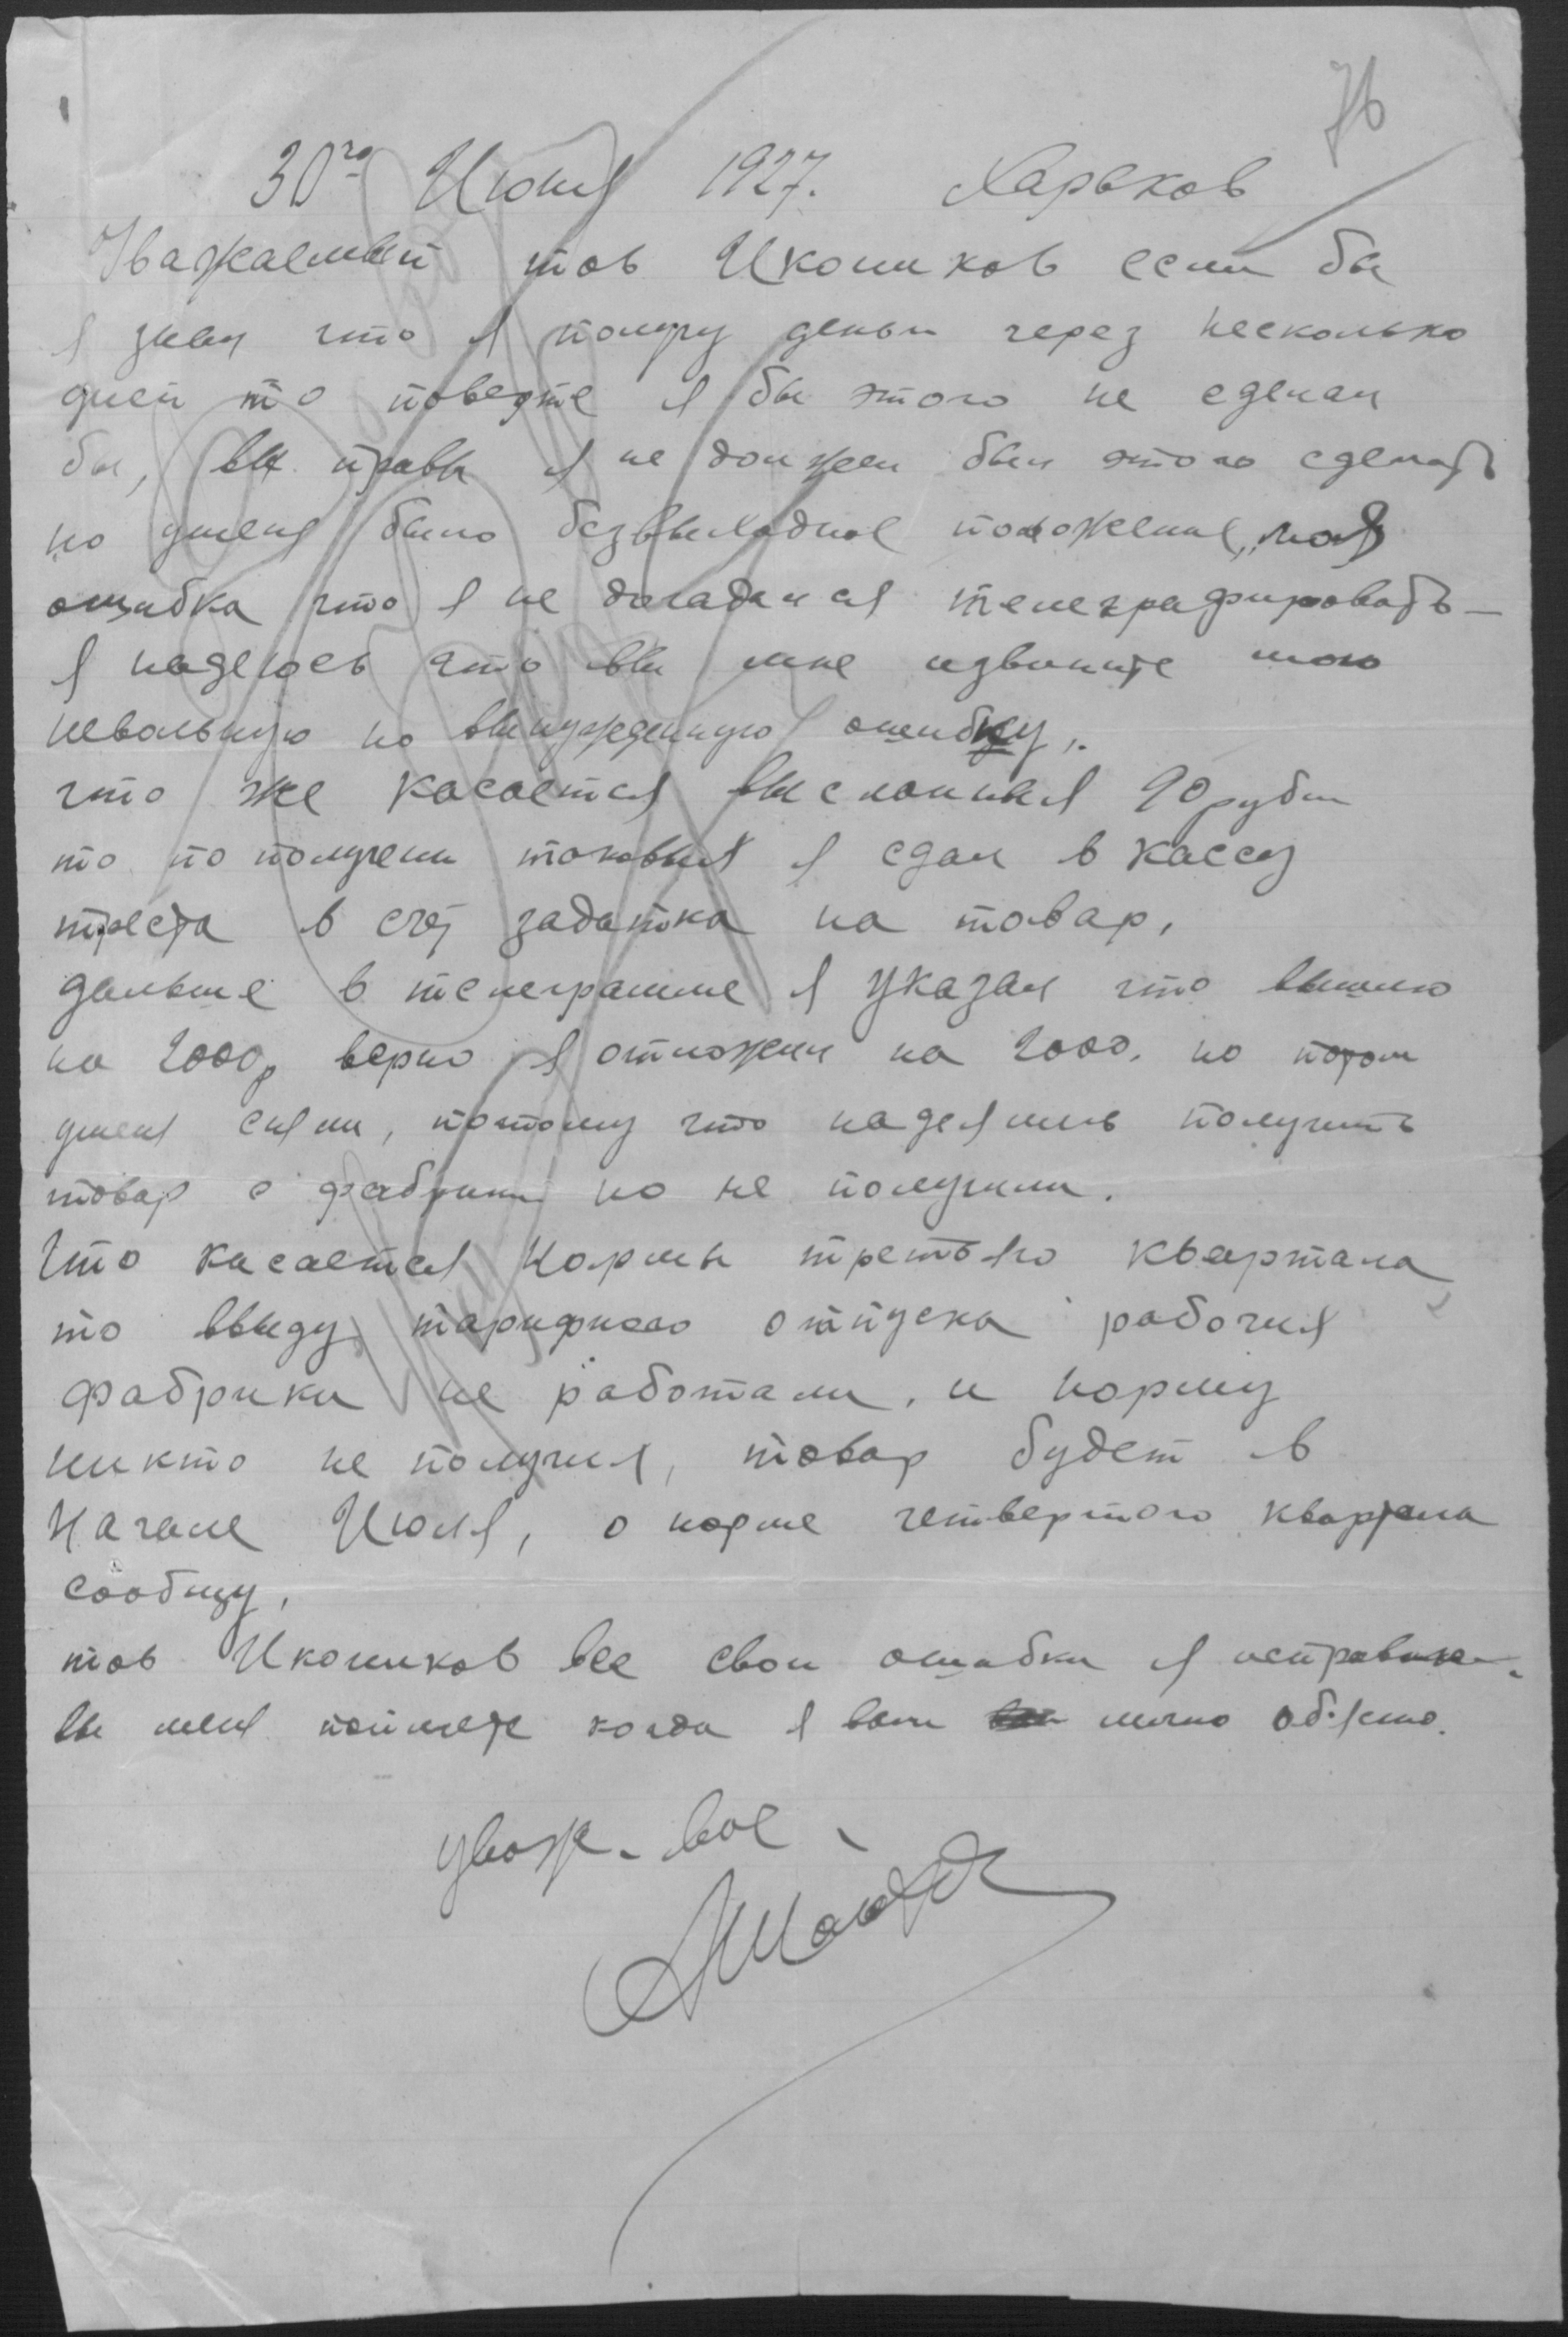 76
30го Июня 1927. Харьков
Уважаемый тов Иконников если бы
я знал что я получу деньги через несколько
дней то поверте я бы этого не сделал
бы, вы правы я не должен был этого сделать
но уменя было безвыходное положение, моя
ошибка что я не догадался телеграфировать —
я надеюсь что вы мне извините мою
невольную но вынужденную ошибку,.
что же касается высланных 90 рубл
то по получени таковых я сдал в кассу
треста в счет задатка на товар,
дальше в телеграмме я указал что вышлю
на 2000р верно я отложил на 2000. но потом
уменя сняли, потому что надеялись получить
товар с фабрики но не получили.
Что касается Нормы третьяго квартала
то ввиду тарифного отпуска рабочих
фабрики не работали, и норму
никто не получил, товар будет в
Начале Июля, о норме четвертого квартала
сообщу,
тов Иконников все свои ошибки я исправлю.
вы меня поймете когда я вам лично обясню.
уваж. вас